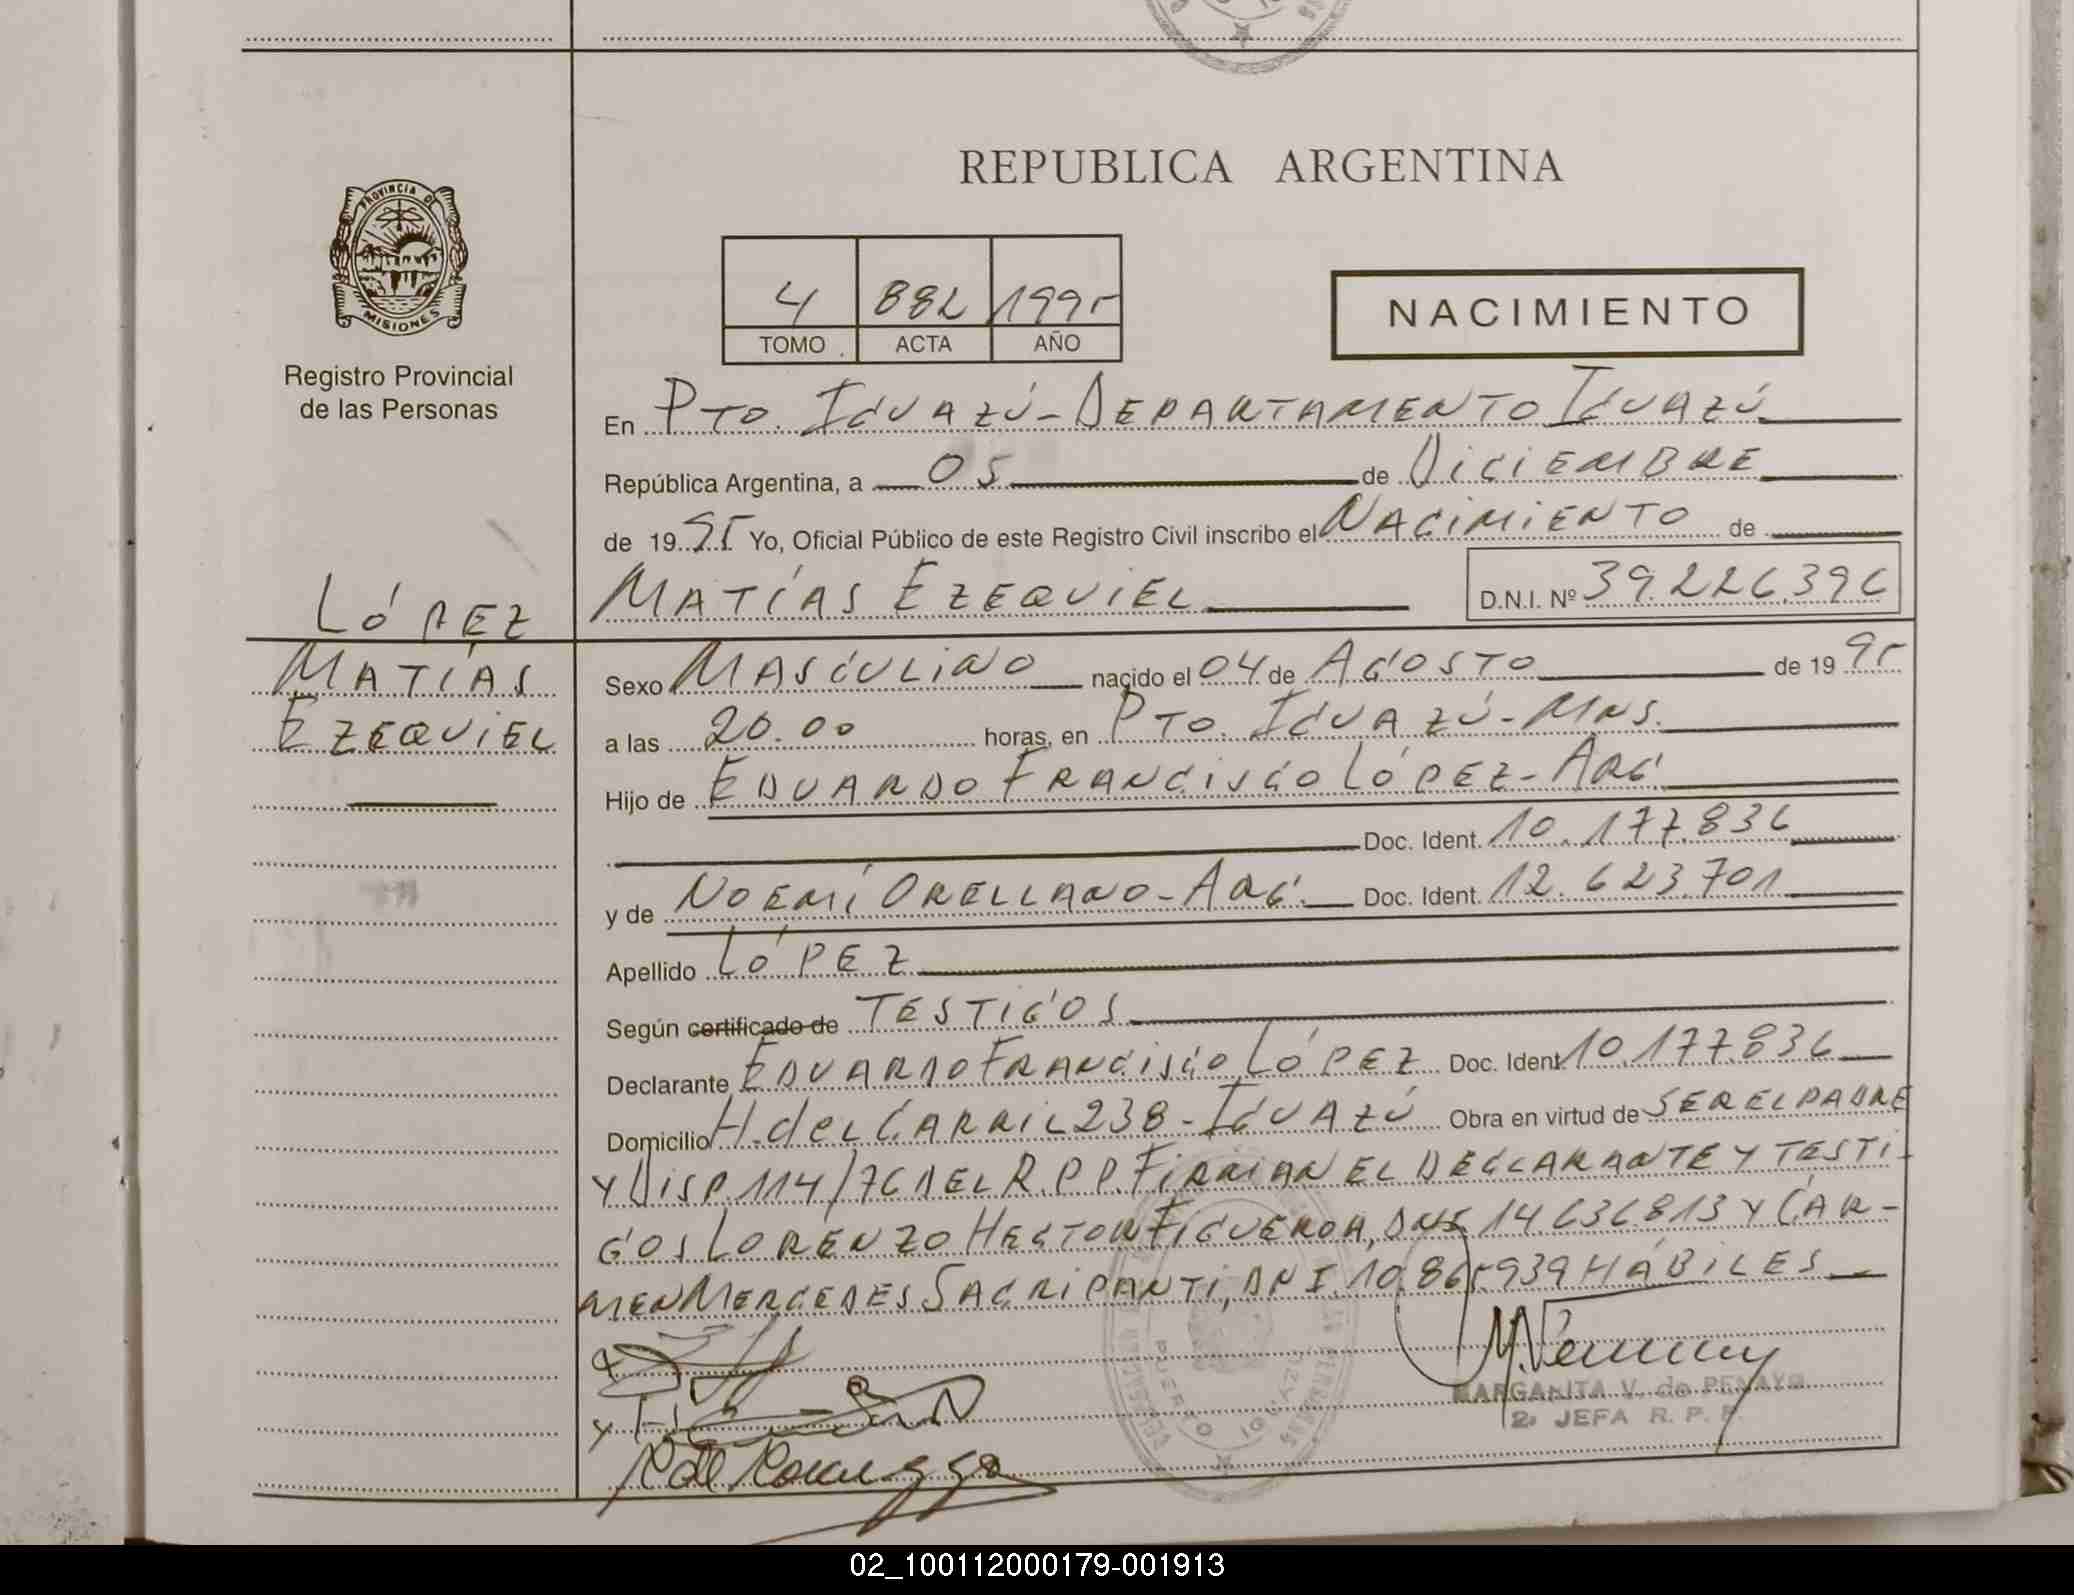 REPUBLICA ARGENTINA
PROVINCIA DE
MISIONES
Registro Provincial
de las Personas
4 882 1995
TOMO ACTA AÑO
NACIMIENTO
En PTO. IGUAZÚ - DEPARTAMENTO IGUAZÚ
República Argentina, a 05 de DICIEMBRE
de 1995 Yo, Oficial Público de este Registro Civil inscribo el NACIMIENTO de
MATÍAS EZEQUIEL D.N.I. Nº 39.226.396
LÓPEZ
MATÍAS
EZEQUIEL
Sexo MASCULINO nacido el 04 de AGOSTO de 1995
a las 20.00 horas, en PTO. IGUAZÚ - MNS.
Hijo de EDUARDO FRANCISCO LÓPEZ - ARG.
Doc. Ident. 10.177.836
y de NOEMÍ ORELLANO - ARG. Doc. Ident. 12.623.701
Apellido LÓPEZ
Según certificado de TESTIGOS
Declarante EDUARDO FRANCISCO LÓPEZ Doc. Ident. 10.177.836
Domicilio H. del CARRIL 238 - IGUAZÚ Obra en virtud de SER EL PADRE
Y DISP. 114/76 DEL R.P.P. FIRMAN EL DECLARANTE Y TESTI-
GOS LORENZO HECTOR FIGUEROA, DNI 14.636.813 Y CAR-
MEN MERCEDES SACRIPANTI, DNI. 10.865.939 HÁBILES
MARGARITA V. de PENAYO
2ª JEFA R. P. P.
02_100112000179-001913